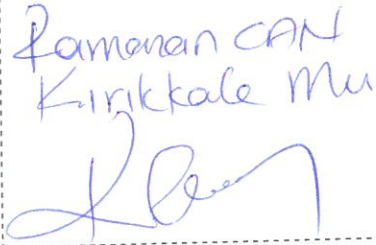 Ramanan CAN
Kırıkkale Mu